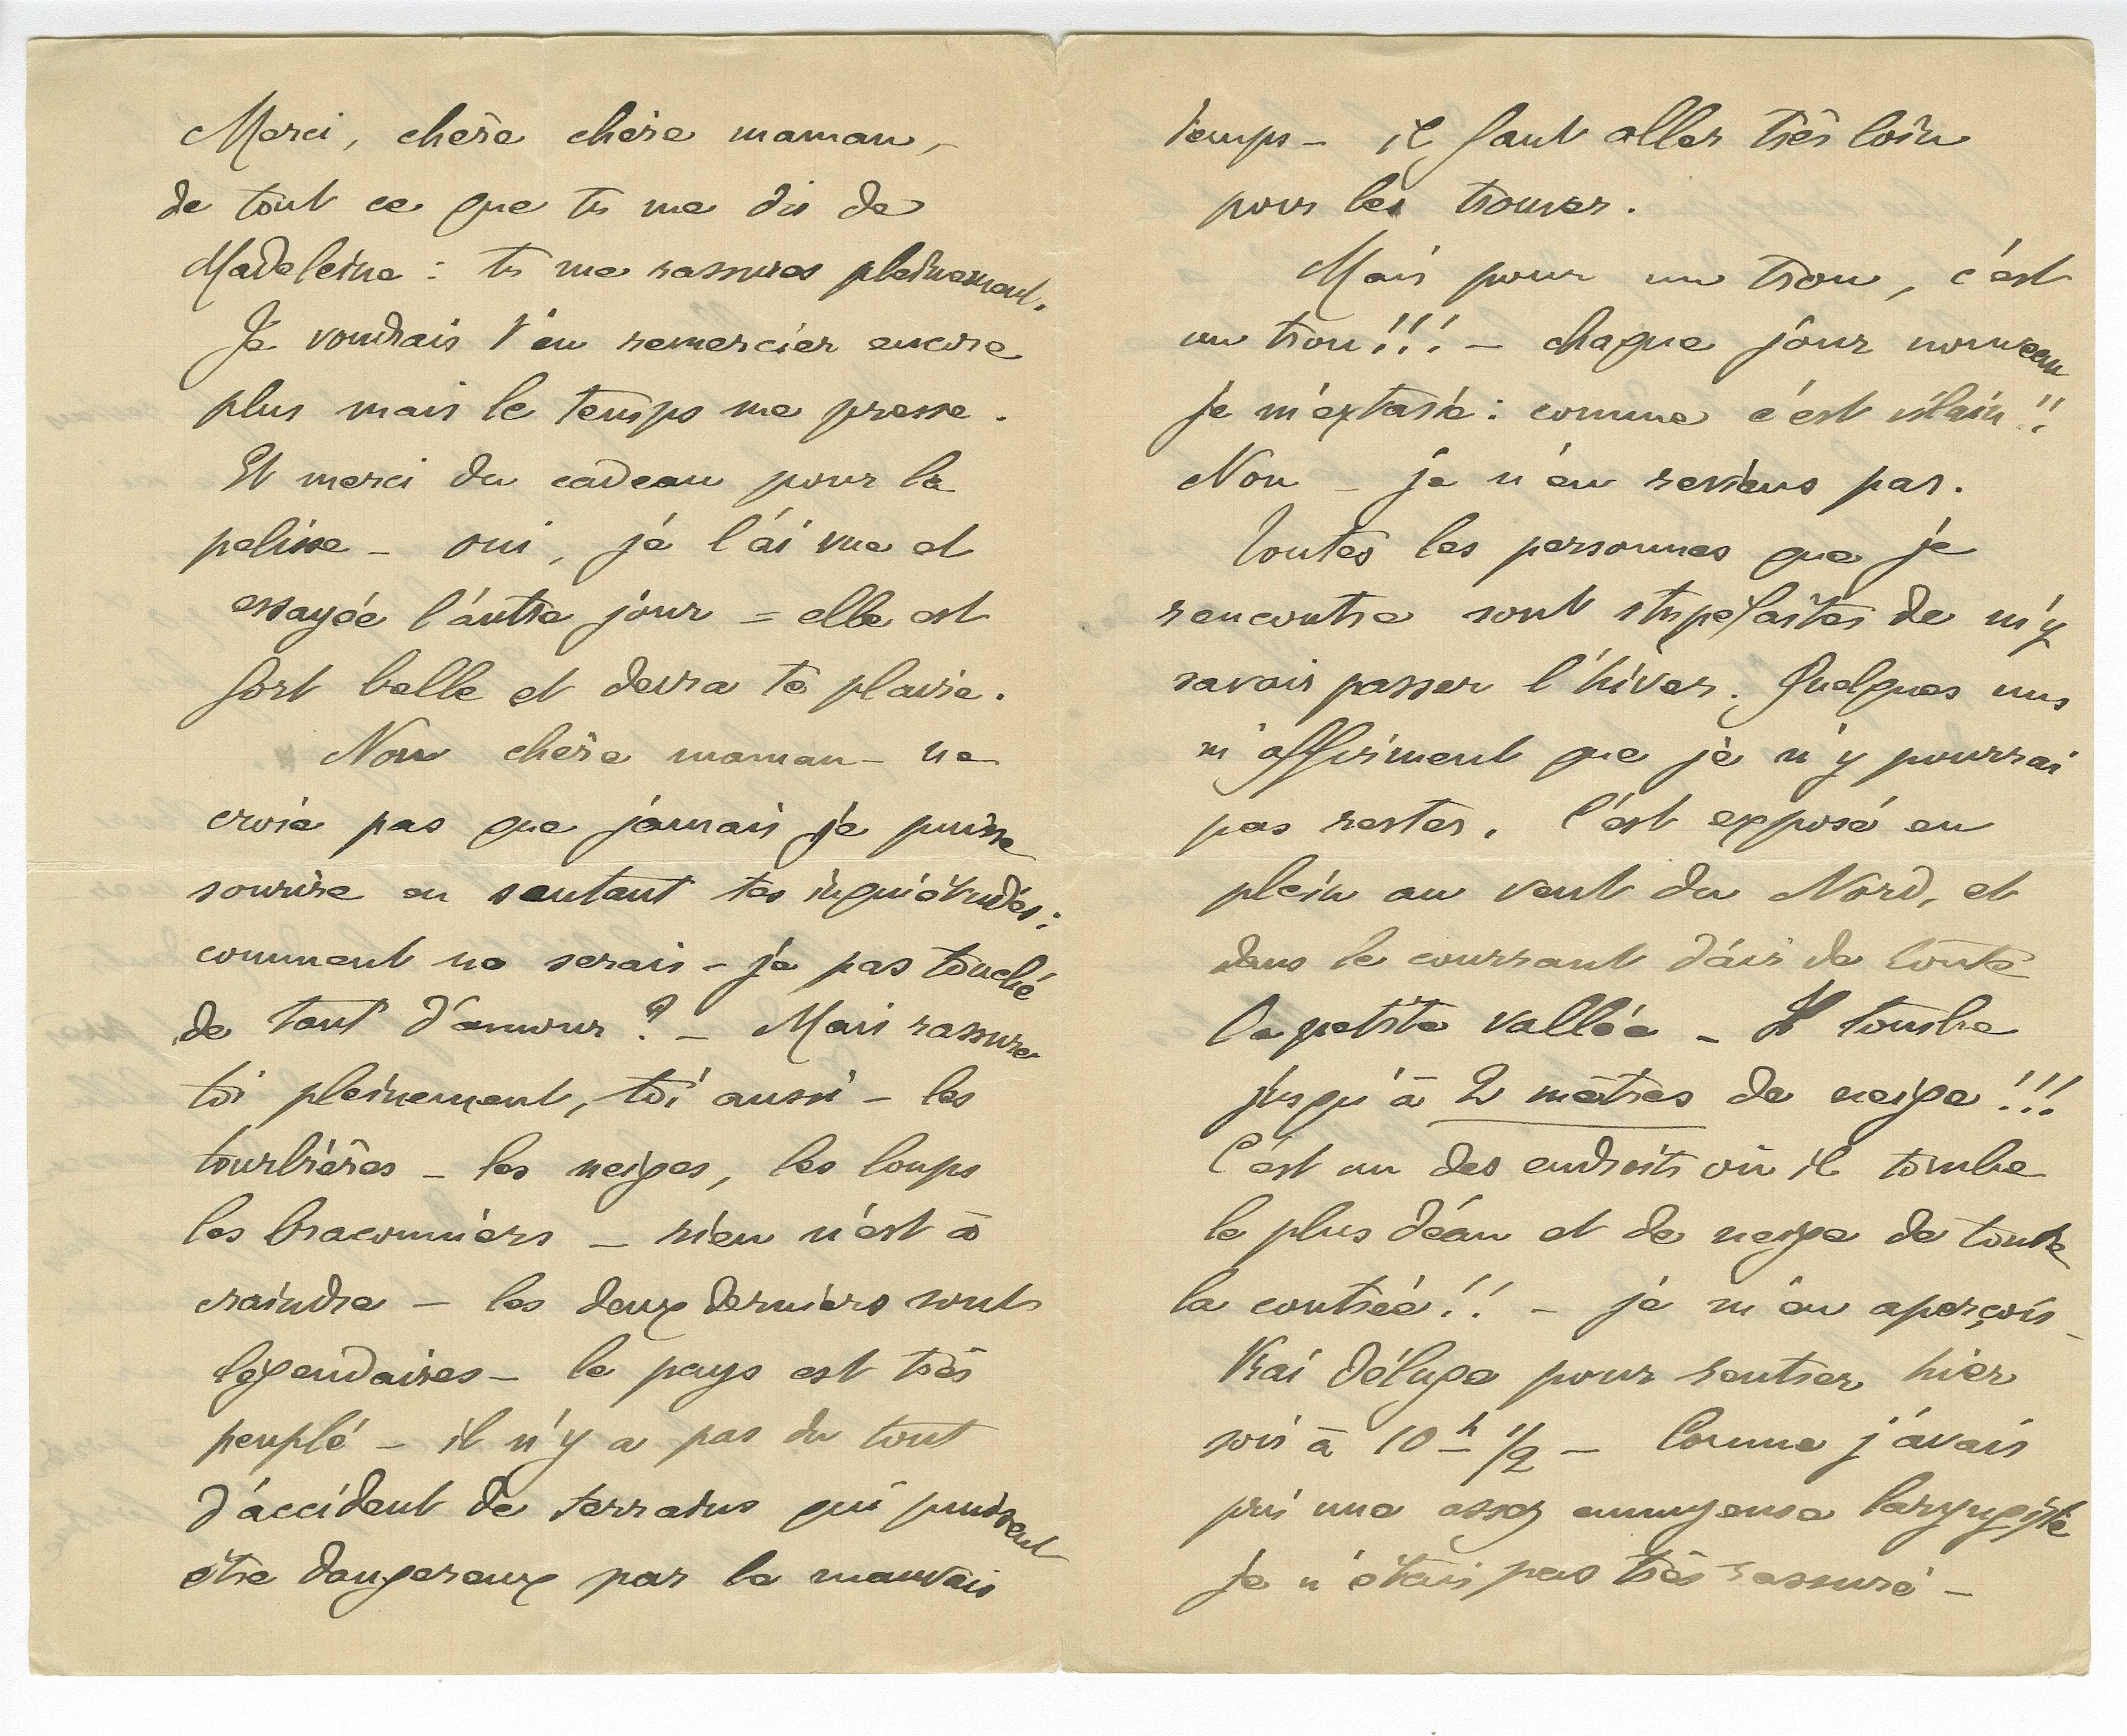 Merci, chère chère maman, -
de tout ce que tu me dis de
Madeleine : tu me rassures pleinement.
Je voudrais t'en remercier encore
plus mais le temps me presse.
Et merci du cadeau pour la
pelisse - oui, je l'ai vue et
essayée l'autre jour = elle est
fort belle et devra te plaire.
Non chère maman - ne
crois pas que jamais je puisse
sourire en sentant tes inquiétudes :
comment ne serais-je pas touché
de tant d'amour ? - Mais rassure
toi pleinement, toi aussi - les
tourbières - les neiges, les loups
les braconniers - rien n'est à
craindre - les deux derniers sont
légendaires - le pays est très
peuplé - il n'y a pas du tout
d'accident de terrains qui puissent
être dangereux par le mauvais
temps - il faut aller très loin
pour les trouver.
Mais pour un trou, c'est
un trou !!! - chaque jour nouveau
je m'extasie : comme c'est vilain !!
Non - je n'en reviens pas.
Toutes les personnes que je
rencontre sont stupéfaites de m'y
savoir passer l'hiver. Quelques uns
m'affirment que je n'y pourrai
pas rester. C'est exposé en
plein au vent du Nord, et
dans le courrant d'air de toute
la petite vallée - Il tombe
jusqu'à 2 mètres de neige !!!
C'est un des endroits où il tombe
le plus d'eau et de neige de toute
la contrée !! - je m'en aperçois -
Vrai déluge pour rentrer hier
soir à 10 h 1/2 - Comme j'avais
pris une assez ennuyeuse laryngite
je n'étais pas très rassuré -